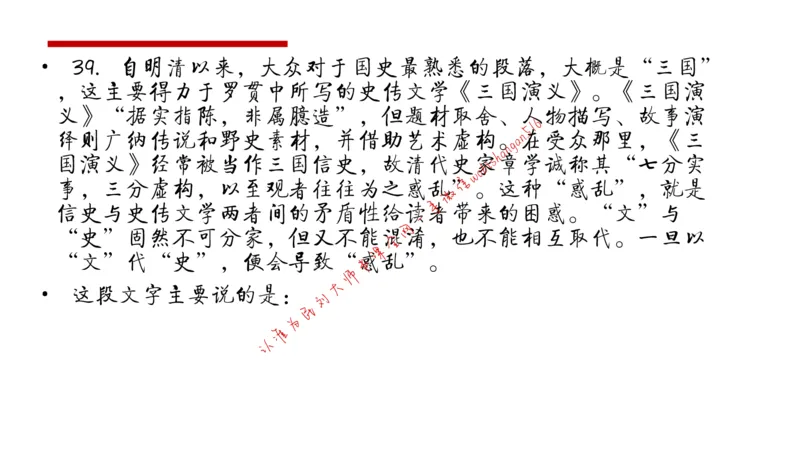 • 39. 自明清以来，大众对于国史最熟悉的段落，大概是“三国”
，这主要得力于罗贯中所写的史传文学《三国演义》。《三国演
义》“据实指陈，非属臆造”，但题材取舍、人物描写、故事演
绎则广纳传说和野史素材，并借助艺术虚构。在受众那里，《三
国演义》经常被当作三国信史，故清代史家章学诚称其“七分实
事，三分虚构，以至观者往往为之惑乱”。这种“惑乱”，就是
信史与史传文学两者间的矛盾性给读者带来的困惑。“文”与
“史”固然不可分家，但又不能混淆，也不能相互取代。一旦以
“文”代“史”，便会导致“惑乱”。
• 这段文字主要说的是：